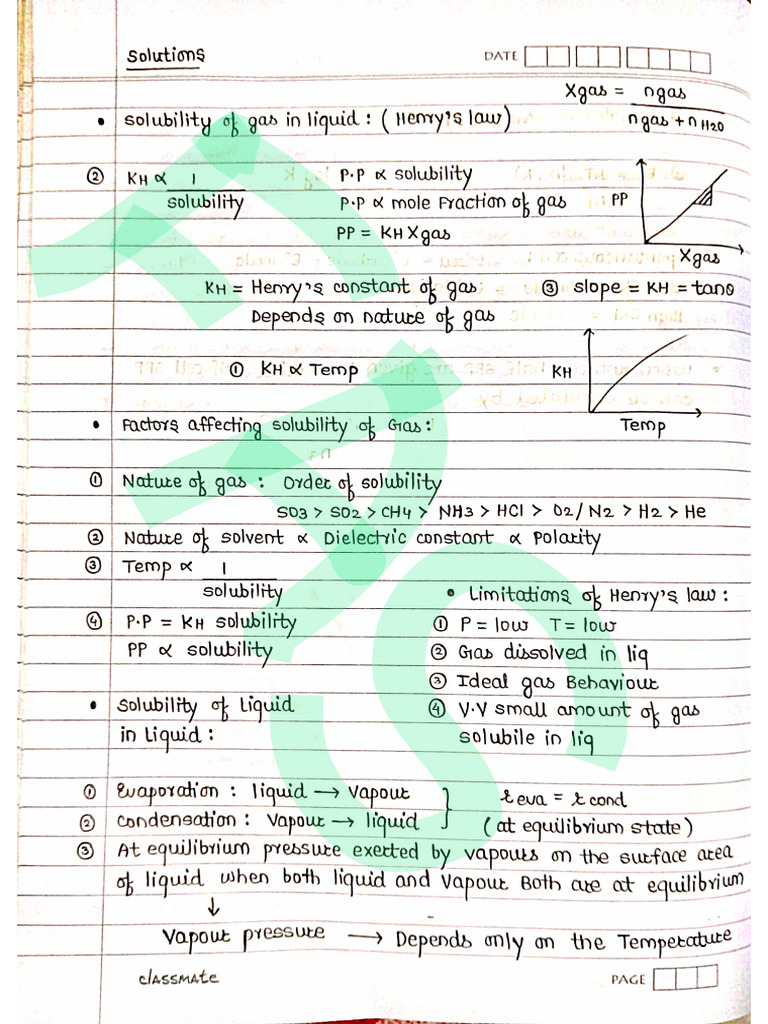 Solutions
DATE
Xgas = ngas / ngas + nH2O
• Solubility of gas in liquid : ( Henry's law )
② KH ∝ 1 / solubility
P.P ∝ solubility
P.P ∝ mole fraction of gas
PP = KH Xgas
PP
Xgas
KH = Henry's constant of gas
③ slope = KH = tanθ
Depends on nature of gas
① KH ∝ Temp
KH
Temp
• Factors affecting solubility of Gas :
① Nature of gas : Order of solubility
SO3 > SO2 > CH4 > NH3 > HCl > O2/N2 > H2 > He
② Nature of solvent ∝ Dielectric constant ∝ Polarity
③ Temp ∝ 1 / solubility
④ P.P = KH solubility
PP ∝ solubility
• Limitations of Henry's law :
① P = low T = low
② Gas dissolved in liq
③ Ideal gas Behaviour
④ V.V small amount of gas
solubile in liq
• Solubility of liquid
in liquid :
① Evaporation : liquid → Vapour
② Condensation : Vapour → liquid
r eva = r cond
( at equilibrium state )
③ At equilibrium pressure exerted by vapours on the surface area
of liquid when both liquid and vapour Both are at equilibrium
↓
Vapour pressure → Depends only on the Temperature
classmate
PAGE